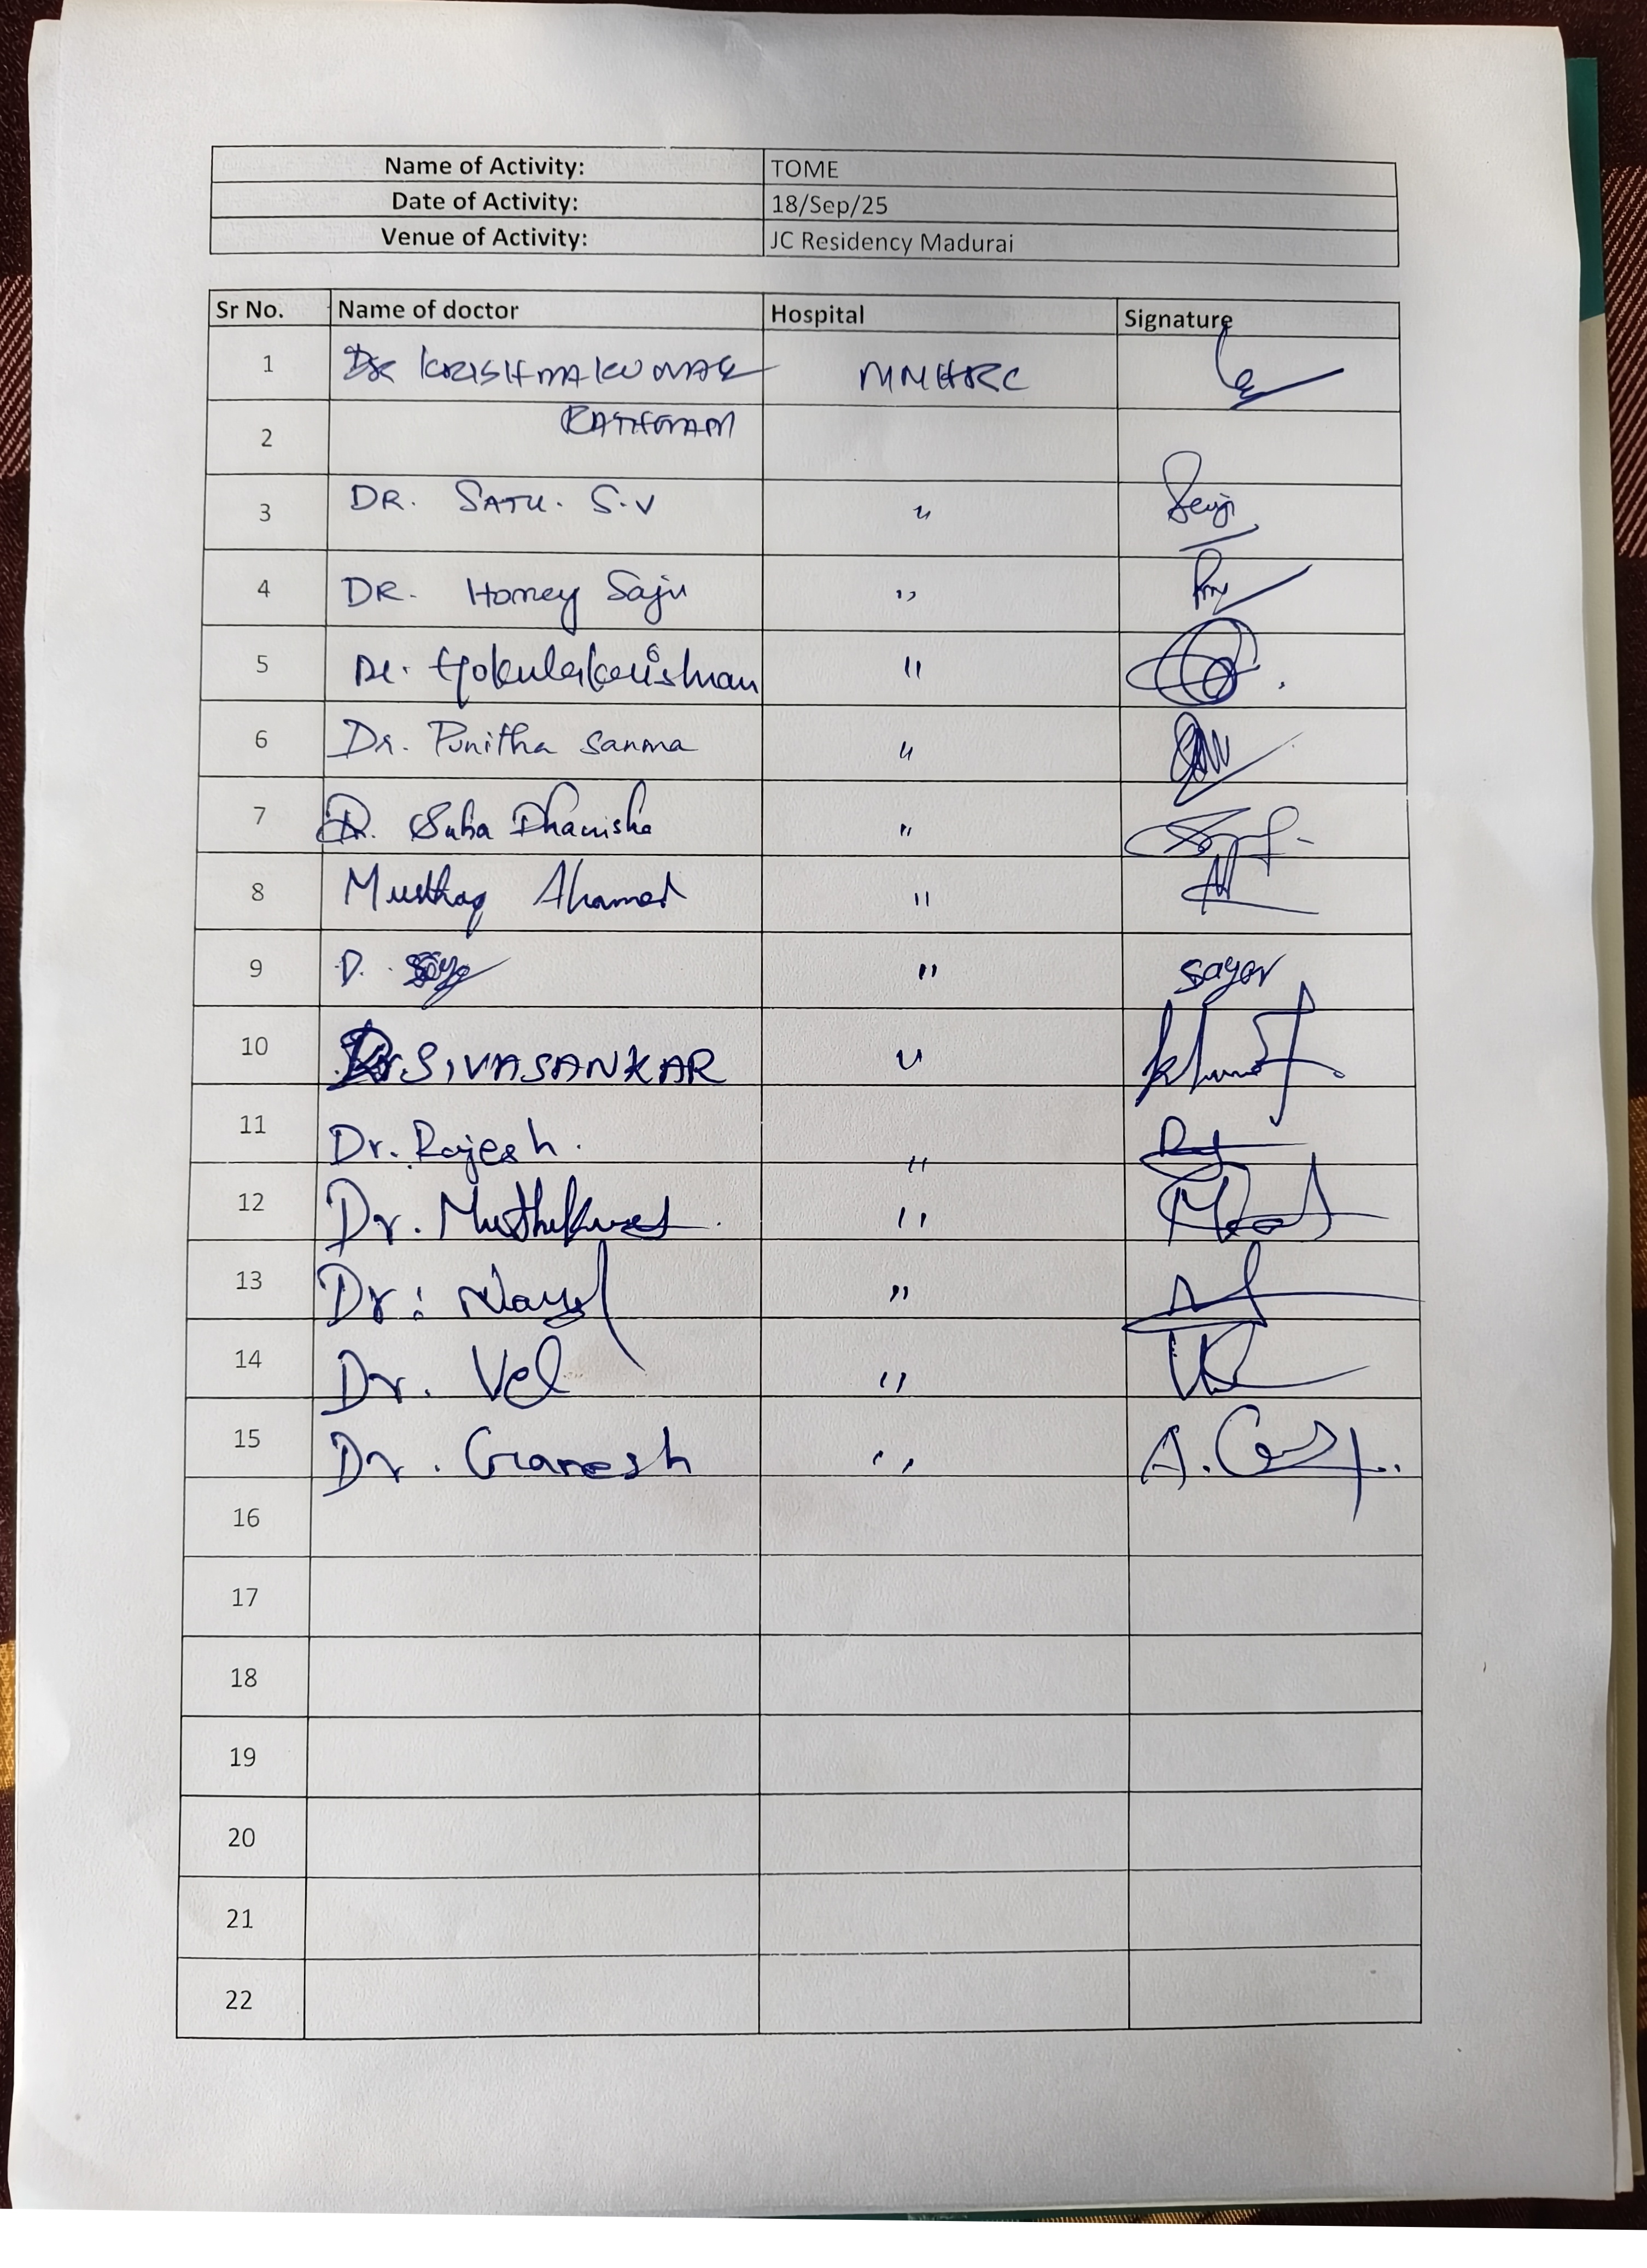 Name of Activity: TOME
Date of Activity: 18/Sep/25
Venue of Activity: JC Residency Madurai
Sr No. Name of doctor Hospital Signature
1 Dr KRISHNAKUMAR MMHRC
2 RATHNAM
3 DR. SATU. S.V "
4 DR. Honey Saju "
5 Dr. Gokulakrishnan "
6 Dr. Punitha Sanma "
7 Dr. Suba Dhanisha "
8 Musthaq Ahamed "
9 D. " sayar
10 Dr. SIVASANKAR "
11 Dr. Rajesh. "
12 Dr. "
13 Dr: "
14 Dr. Vel "
15 Dr. Ganesh "
16
17
18
19
20
21
22